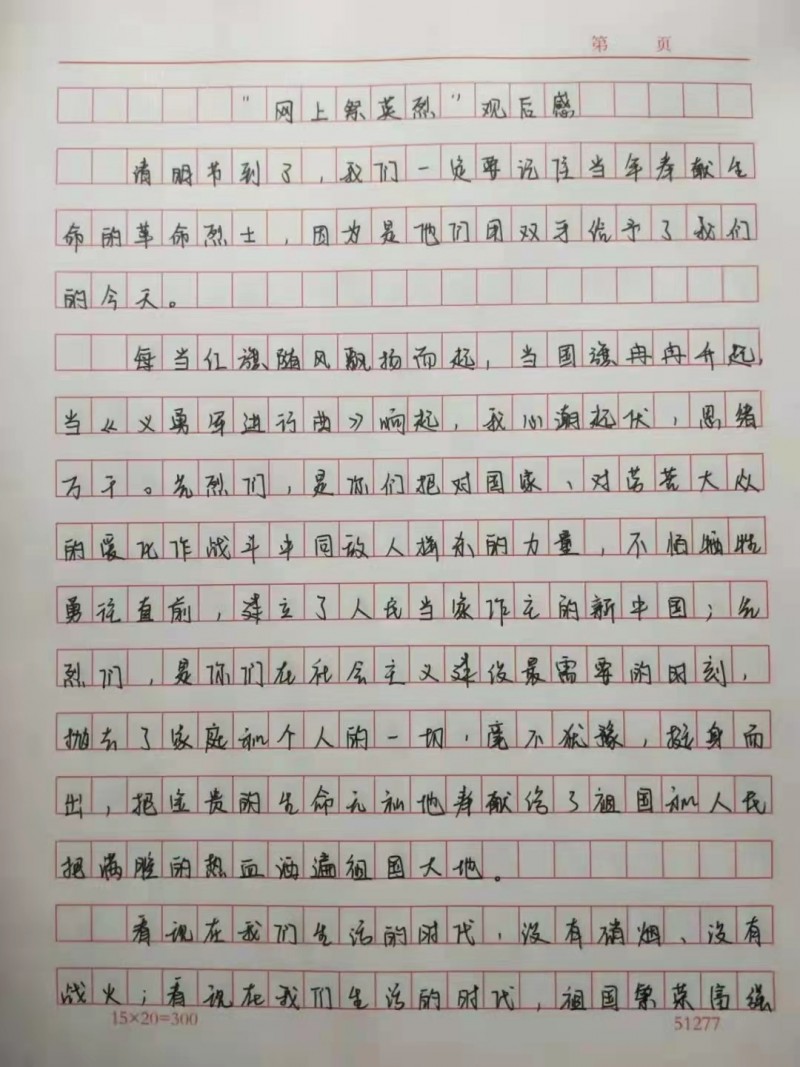 第 页
"网上祭英烈"观后感
清明节到了,我们一定要记住当年奉献生
命的革命烈士,因为是他们用双手给予了我们
的今天。
每当红旗随风飘扬而起,当国旗冉冉升起,
当《义勇军进行曲》响起,我心潮起伏,思绪
万千。先烈们,是你们把对国家、对劳苦大众
的爱化作战斗中同敌人拼杀的力量,不怕牺牲
勇往直前,建立了人民当家作主的新中国;先
烈们,是你们在社会主义建设最需要的时刻,
抛去了家庭和个人的一切,毫不犹豫,挺身而
出,把宝贵的生命无私地奉献给了祖国和人民
把满腔的热血洒遍祖国大地。
看现在我们生活的时代,没有硝烟、没有
战火;看现在我们生活的时代,祖国繁荣富强
15×20=300
51277